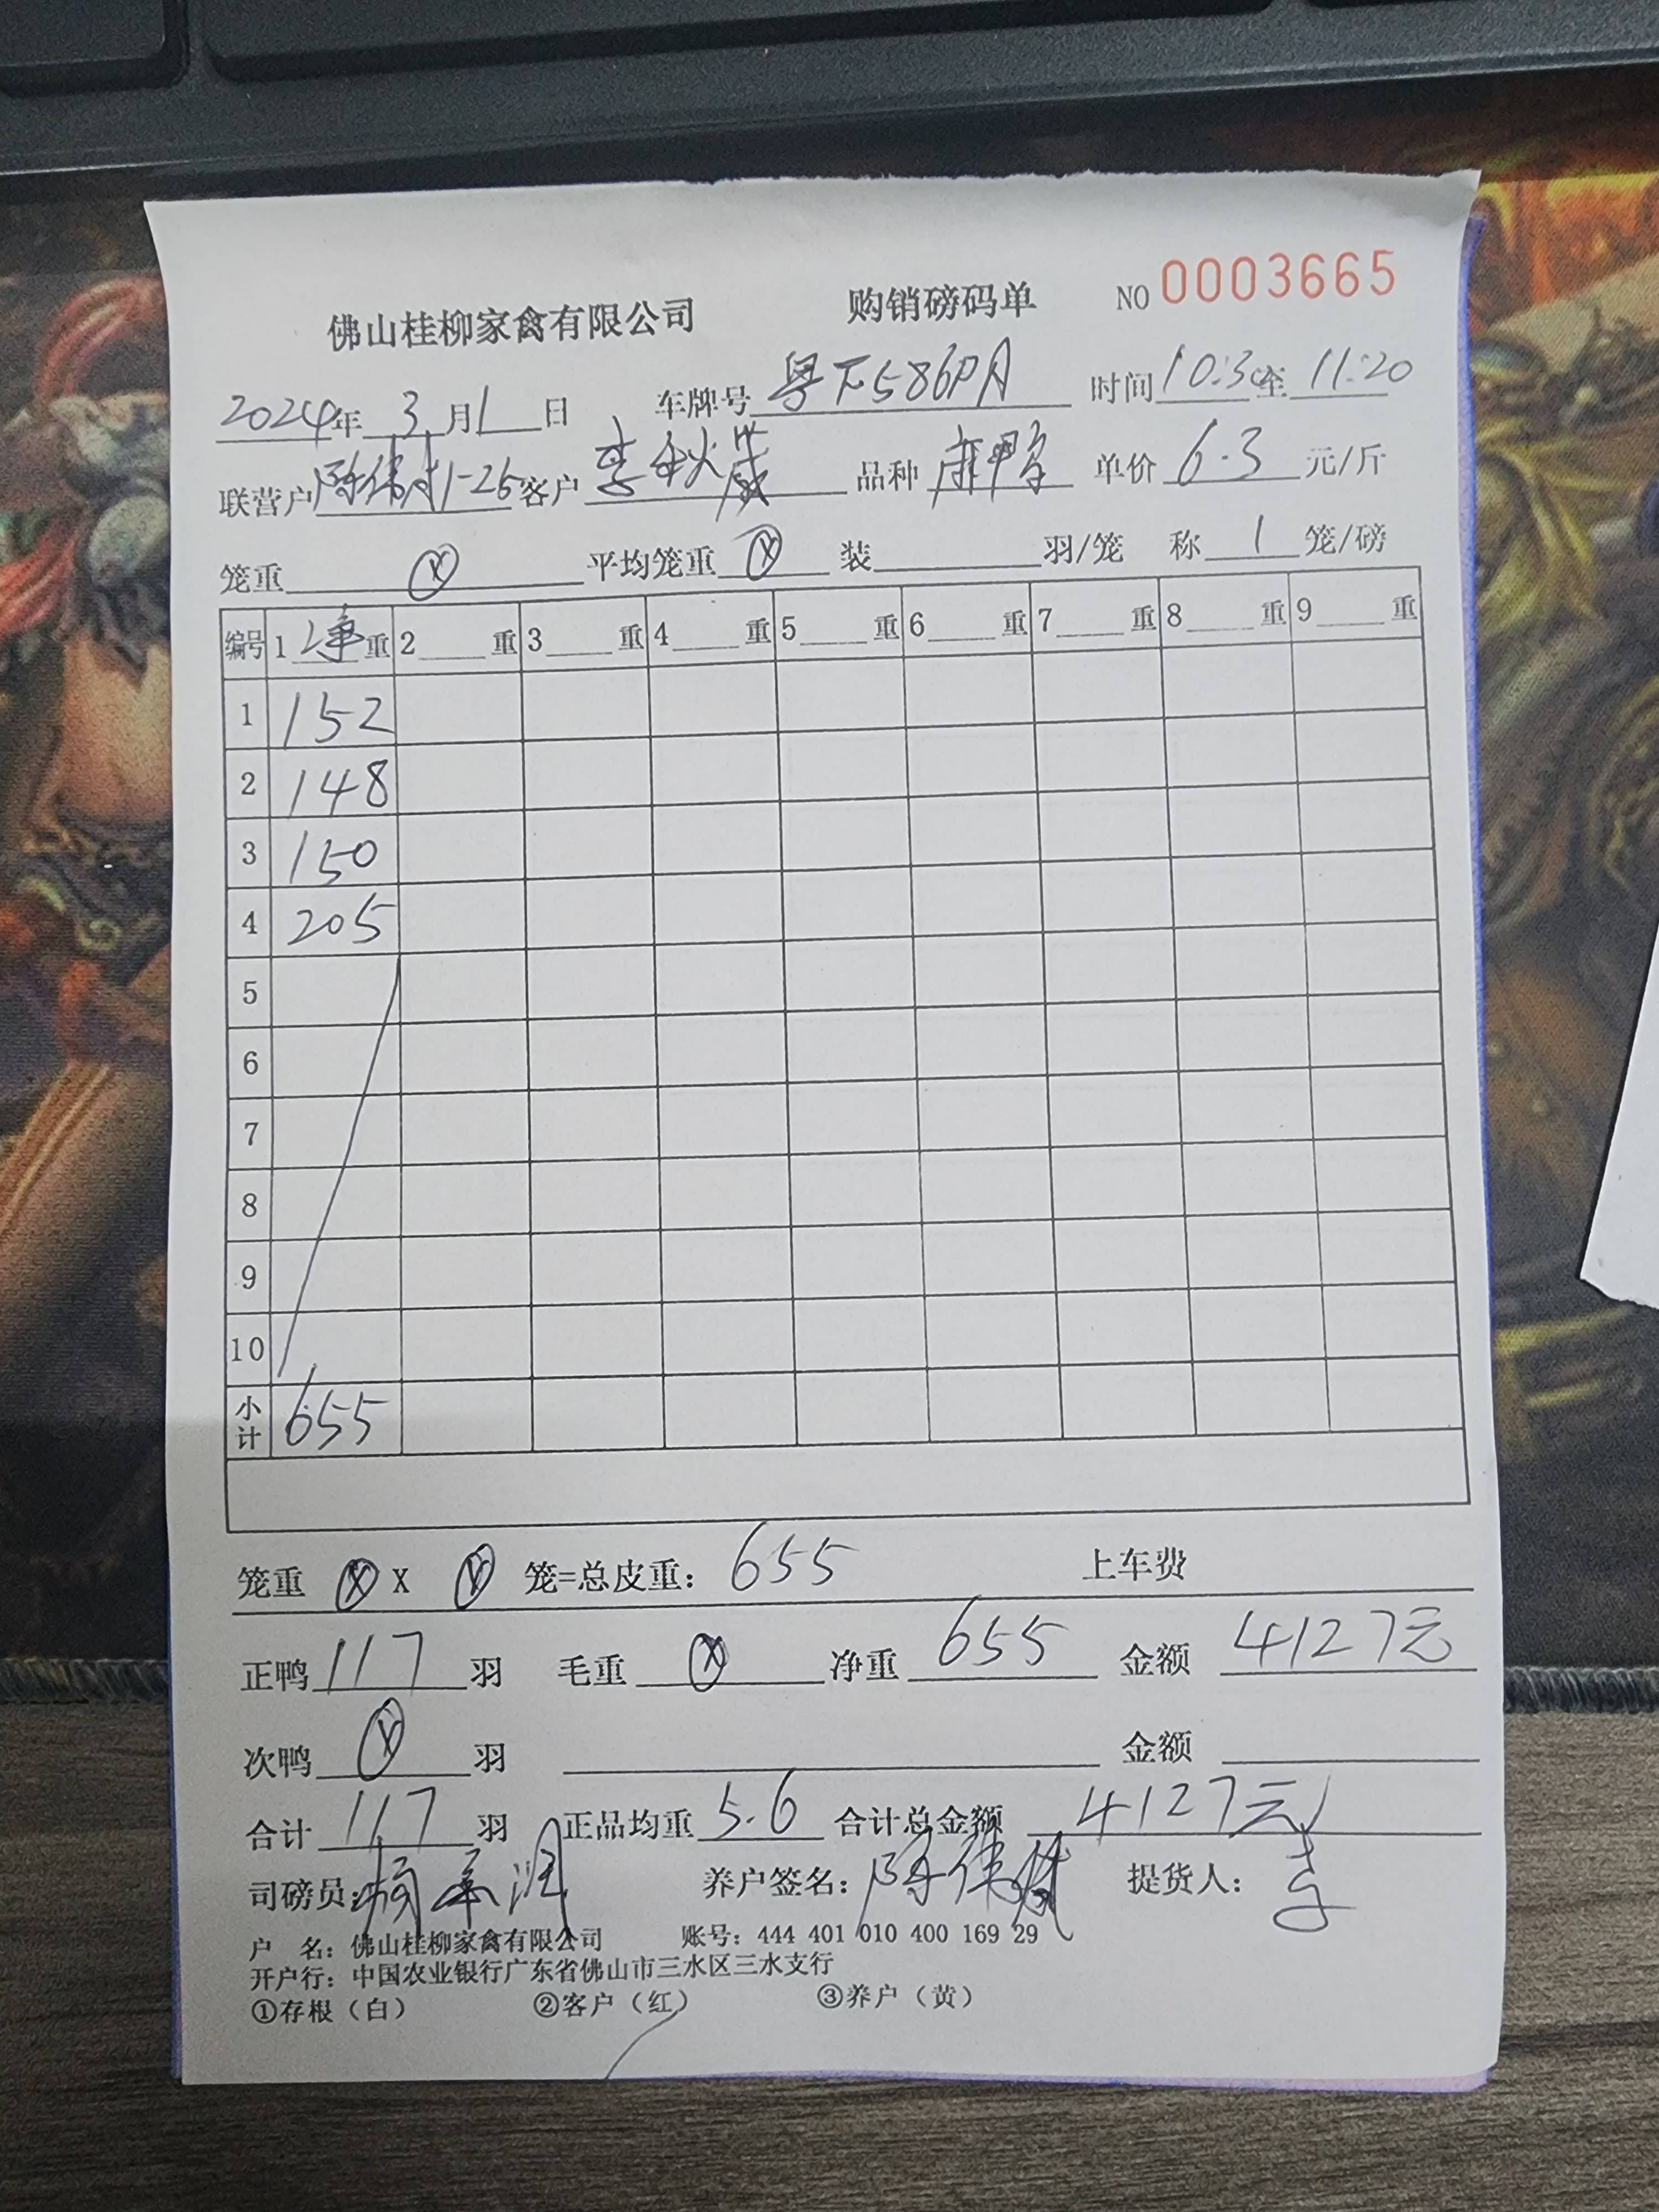 佛山桂柳家禽有限公司 购销磅码单 NO 0003665
2024年 3 月 1 日 车牌号 粤 586 时间 10:30至 11:20
联营户 陈伟 1-25 客户 李秋 品种 麻鸭 单价 6.3 元/斤
笼重 ⓧ 平均笼重 ⓧ 装 羽/笼 称 1 笼/磅
编号 1 净 重 2 重 3 重 4 重 5 重 6 重 7 重 8 重 9 重
1 152
2 148
3 150
4 205
5
6
7
8
9
10
小计 655
笼重 ⓧ X ⓧ 笼=总皮重: 655 上车费
正鸭 117 羽 毛重 ⓧ 净重 655 金额 4127元
次鸭 ⓧ 羽 金额
合计 117 羽 正品均重 5.6 合计总金额 4127元
司磅员: 养户签名: 陈伟 提货人: 李
户 名: 佛山桂柳家禽有限公司 账号: 444 401 010 400 169 29
开户行: 中国农业银行广东省佛山市三水区三水支行
①存根（白） ②客户（红） ③养户（黄）